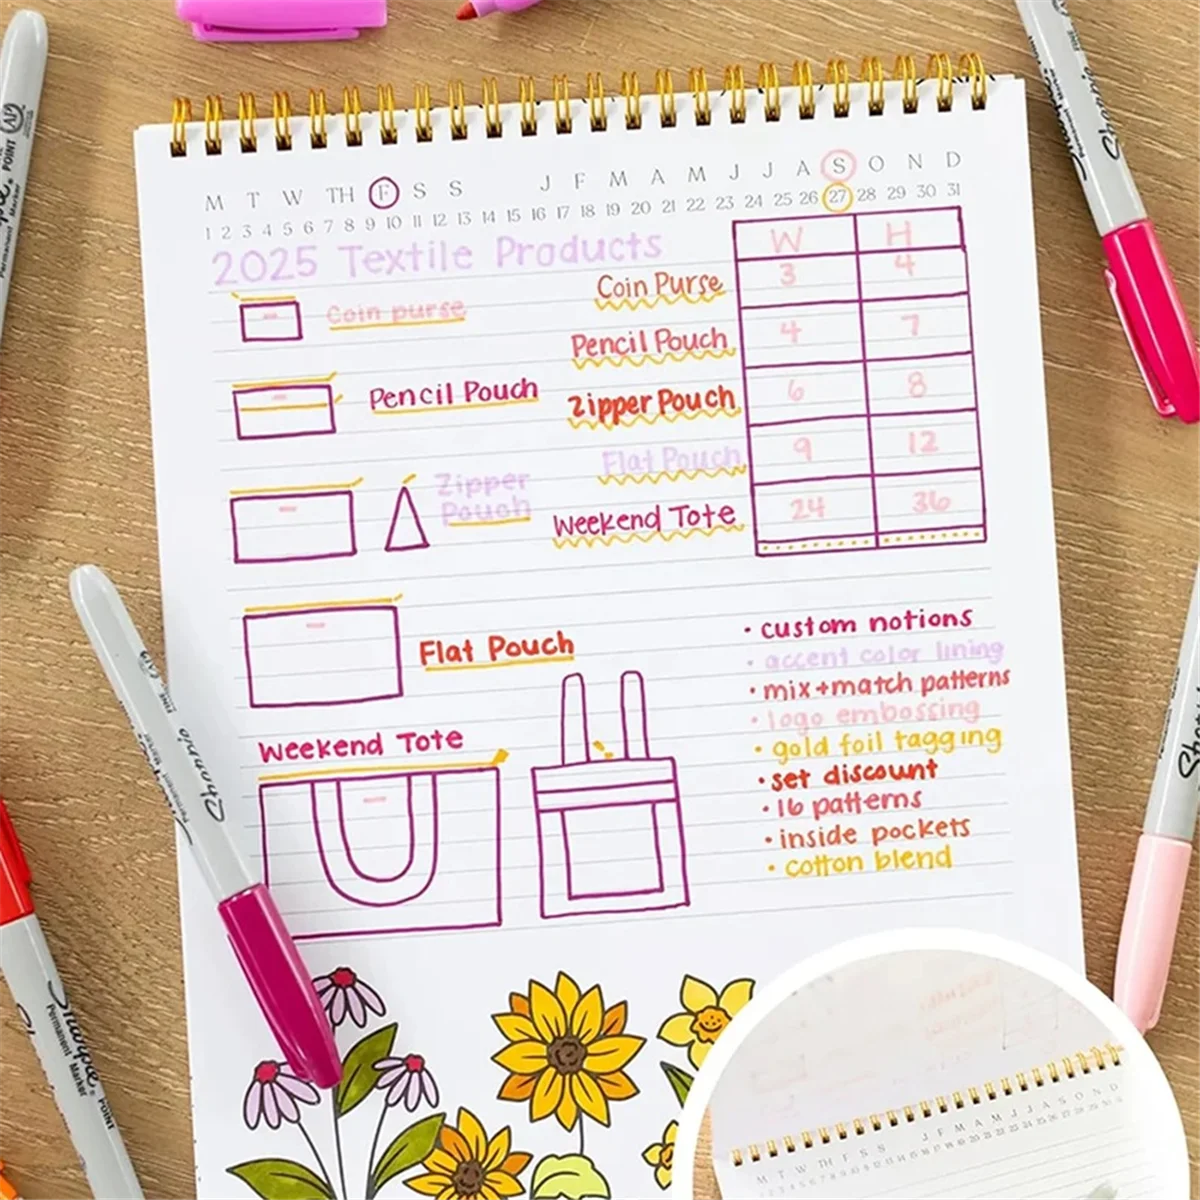 M T W TH F S S J F M A M J J A S O N D
1 2 3 4 5 6 7 8 9 10 11 12 13 14 15 16 17 18 19 20 21 22 23 24 25 26 27 28 29 30 31
2025 Textile Products
W H
Coin purse
Coin Purse 3 4
Pencil Pouch 4 7
Pencil Pouch
Zipper Pouch 6 8
Flat Pouch 9 12
Zipper
Pouch
Weekend Tote 24 36
Flat Pouch
Weekend Tote
• custom notions
• accent color lining
• mix+match patterns
• logo embossing
• gold foil tagging
• set discount
• 16 patterns
• inside pockets
• cotton blend
Sharpie
Permanent Marker
FINE POINT
Sharpie
Sharpie
Permanent Marker
Sharpie
M T W TH F S S J F M A M J J A S O N D